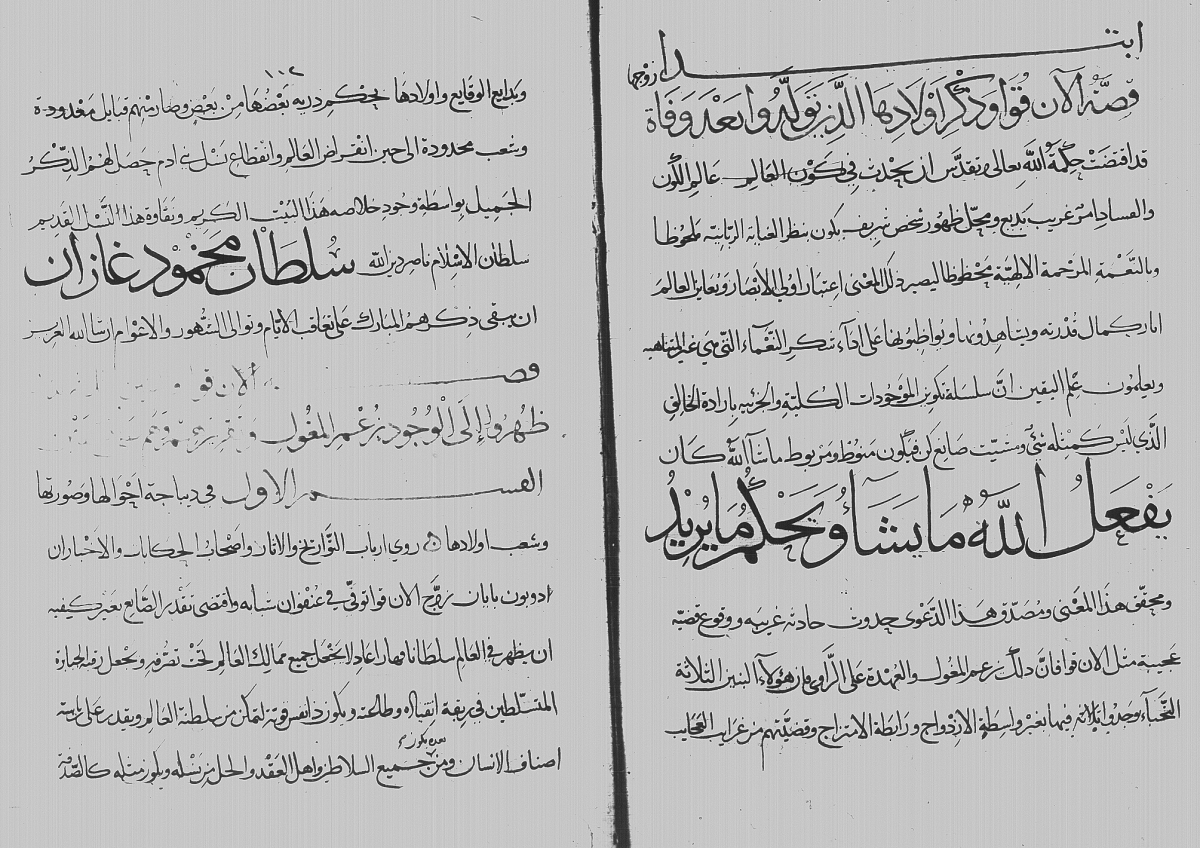 ابتدا
قصّة الآن قوا وذكر اولادها الذين تولدوا بعد وفاة زوجها
قد اقتضت حكمة الله تعالى وتقدّس ان يحدث في كون العالم عالم الكون
والفساد امر غريب بديع ومحل ظهور شخص شريف يكون بنظر العناية الربانية ملحوظا
وبالنعمة المرحمة الالهية محظوظا ليصير ذلك المعنى اعتبار اولى الابصار ويعاين العالم
اثار كمال قدرته ويشاهدونها ويواظبونها على اداء شكر النعماء التي هي غير المتناهية
ويعلمون علم اليقين انّ سلسلة تكوين الموجودات الكلية والجزئية بارادة الخالق
الذي ليس كمثله شئ ومشيت صانع كن فيكون منوط ومربوط ماشاالله كان
يفعل الله ما يشاء ويحكم ما يريد
ومحقق هذا المعنى ومصدّق هذا الدعوى حدوث حادثه غريبه ووقوع قضيّه
عجيبة مثل الان قوا فانّ ذلك زعم المغول والعهدة على الراوى فان هؤلاء البنين الثلاثة
النجباء وجدوا فيها بغير واسطة الازدواج ورابطة الامتزاج وقضيتهم من غرايب العجايب
١١٢
وبدايع الوقايع واولادها بحكم ذريه بعضها من بعض وصار منهم قبايل معدودة
وشعب محدودة الى حين انقراض العالم وانقطاع نسل بني ادم حصل لهم الذكر
الجميل بواسطة وجود خلاصه هذا البيت الكريم ونقاوة هذا النسل القديم
سلطان الاسلام ناصر دين الله سلطان محمود غازان
ان يبقى ذكرهم المبارك على تعاقب الايام وتوالى الشهور والاعوام ان شا الله العزيز
قصه الان قوا
ظهروا إلى الوجود بزعم المغول
القسم الاول في ديباجة احوالها وصورتها
وشعب اولادها روي ارباب التواريخ والاثار واصحاب الحكايات والاخبار ان
دوبون بايان زوج الان قوا توفى في عنفوان شبابه واقتضى تقدير الصانع بغير كيفيه
ان يظهر في العالم سلطانا قهارا عادلا يجعل جميع ممالك العالم تحت تصرفه ويجعل رقبة الجبابرة
المتسلطين في ربقة انقياده وطاعته ويكون ذا نفس قويه لتمكن من سلطنة العالم ويقدر على تربية
بعده يكون
اصناف الانسان ومن جميع السلاطين واهل العقد والحل من نسله ويكون مثله كالصدفة